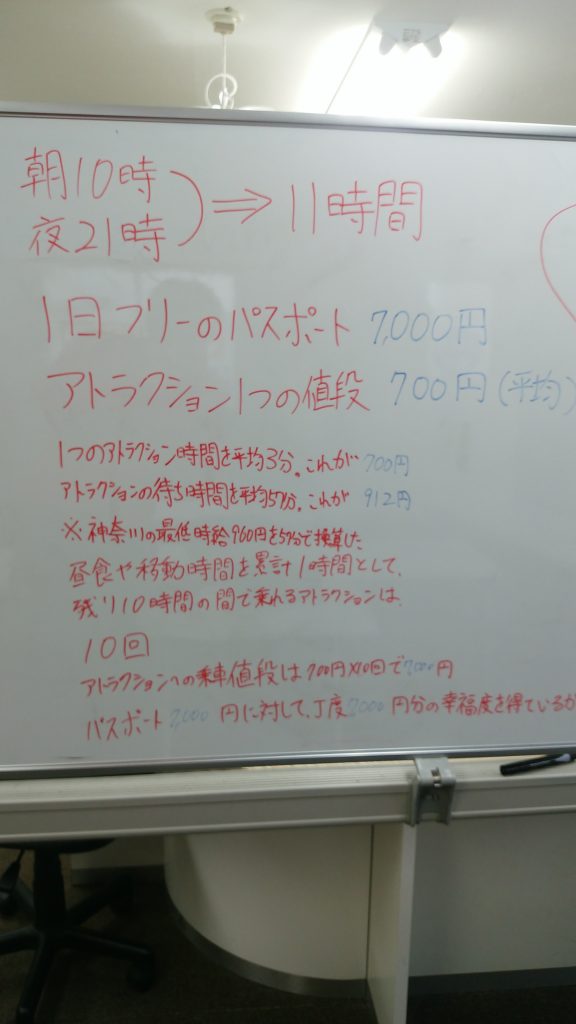 朝10時
夜21時
⇒11時間
1日フリーのパスポート 7,000円
アトラクション1つの値段 700円(平均)
1つのアトラクション時間を平均3分。これが 700円
アトラクションの待ち時間を平均57分。これが 912円
※神奈川の最低時給960円を57分で換算した
昼食や移動時間を累計1時間として、
残り10時間の間で乗れるアトラクションは、
10回
アトラクションへの乗車値段は700円×10回で7000円
パスポート7,000円に対して、丁度7000円分の幸福度を得ているが